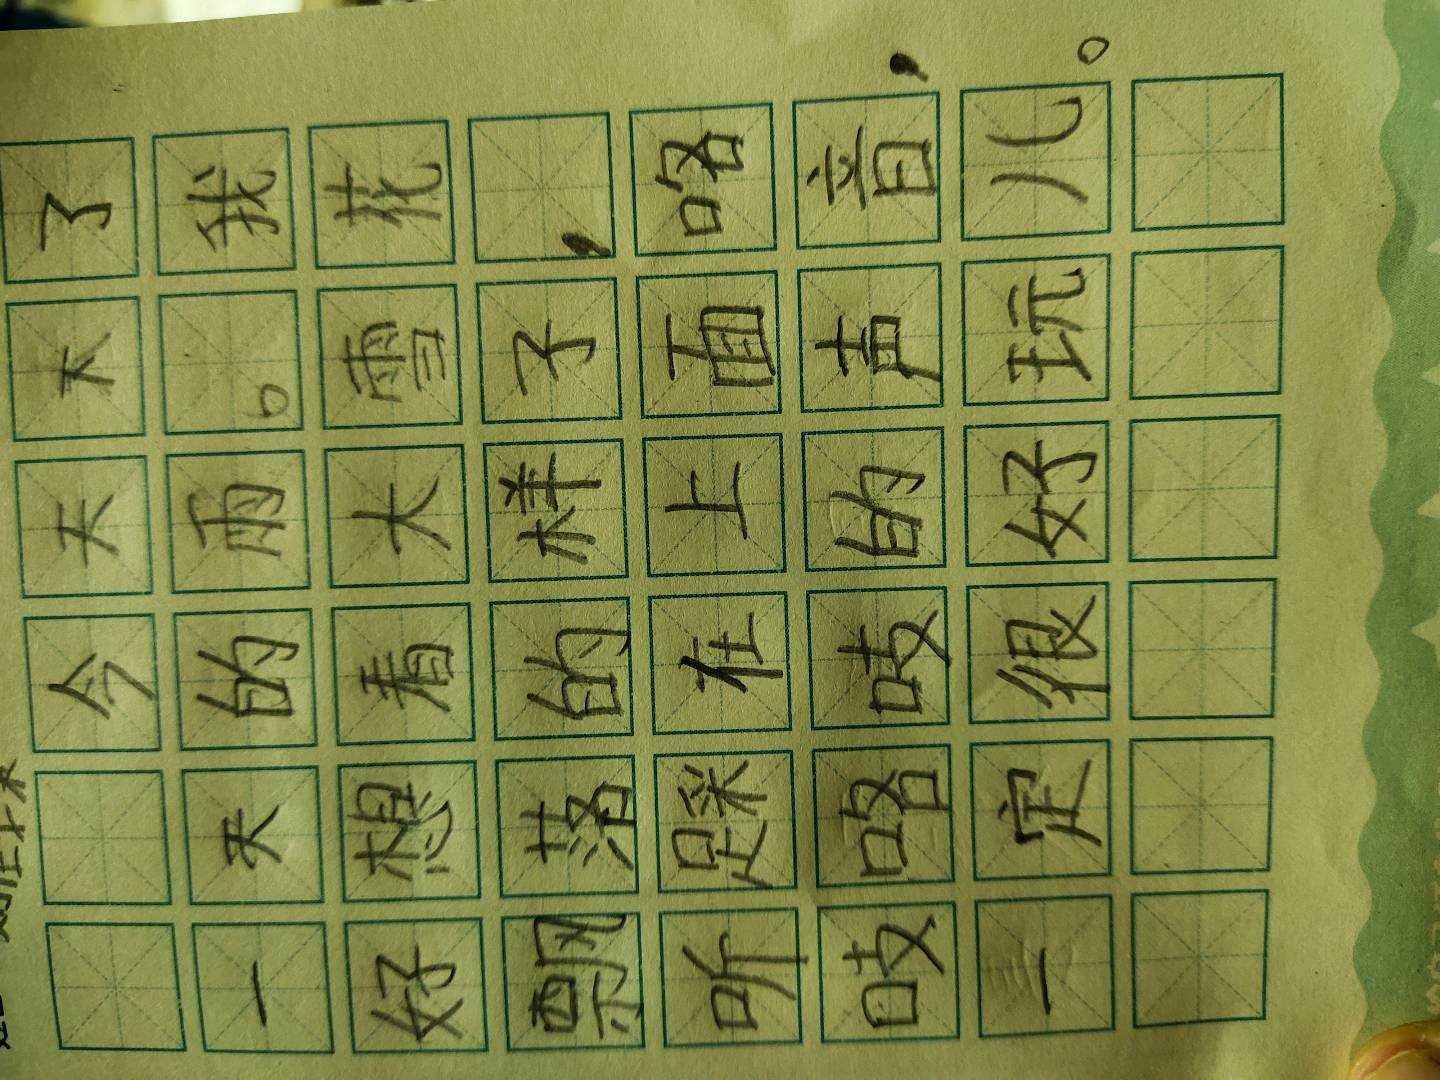 今天下了
一天的雨。我
好想看大雪花
飘落的样子，
听踩在上面咯
吱咯吱的声音，
一定很好玩儿。